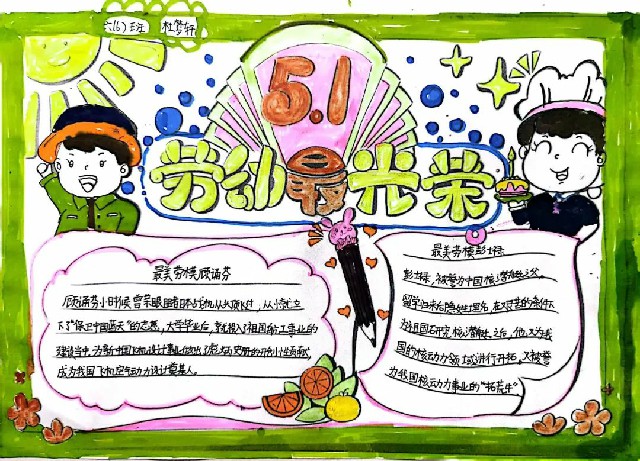 六(6)班 杜梦轩
5.1
劳动最光荣
最美劳模顾诵芬
顾诵芬小时候曾亲眼目睹日本战机从头顶飞过，从小就立
下了"保卫中国蓝天"的志愿，大学毕业后，就投入了祖国航空事业的
建设当中，为新中国飞机设计事业做出了
成为我国飞机空气动力设计奠基人。
最美劳模彭士禄
彭士禄，被誉为中国核潜艇之父，
留学归来后隐姓埋名，在艰苦的条件下
为祖国研究核潜艇之后，他又为我
国的核动力领域进行开拓，又被誉
为我国核动力事业的"拓荒牛"